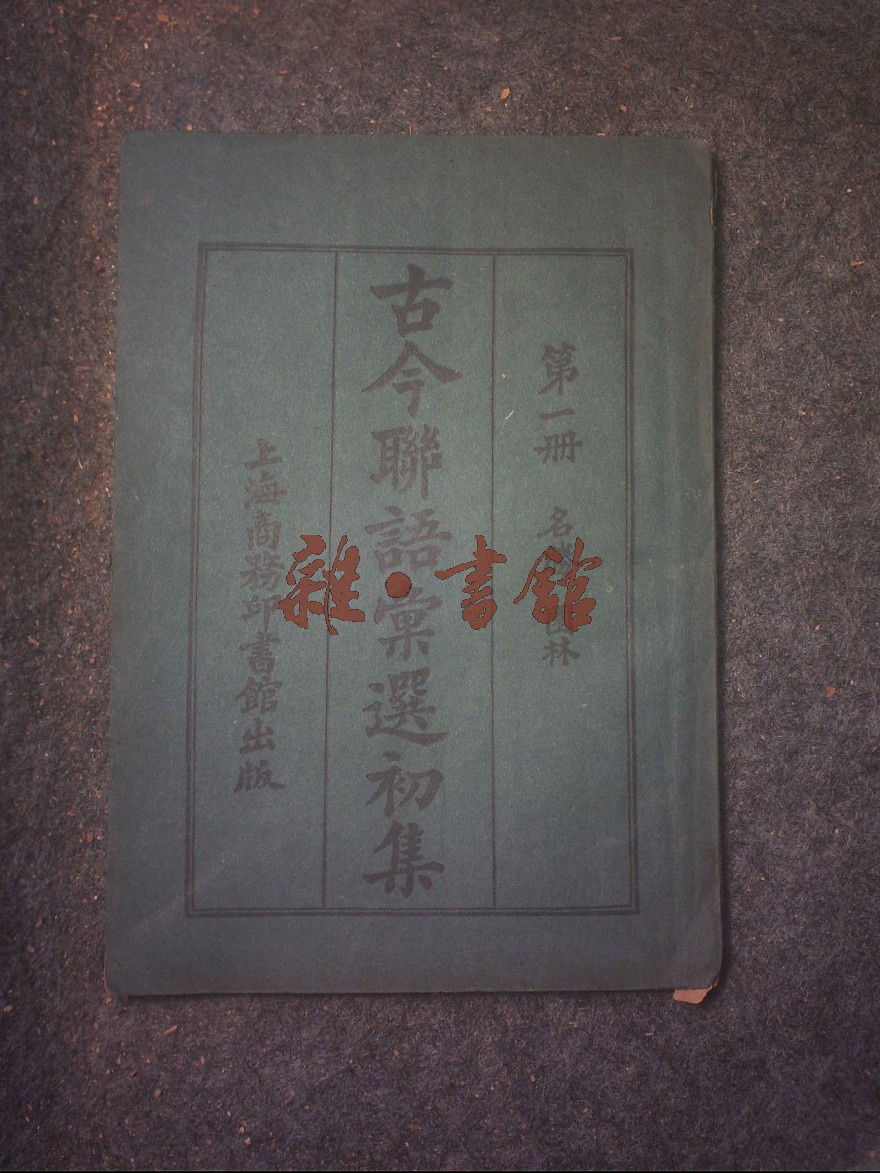 第一冊 名勝 園林
古今聯語彙選初集
上海商務印書館出版
雜·書館